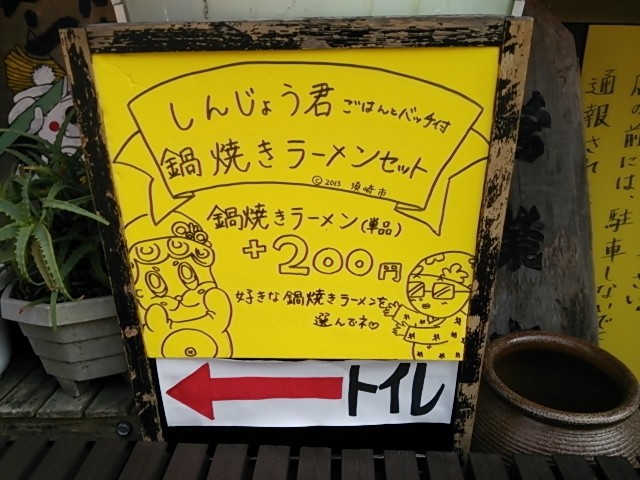 しんじょう君 ごはんとバッチ付
鍋焼きラーメンセット
©2013 須崎市
鍋焼きラーメン(単品)
+200円
好きな鍋焼きラーメンを
選んでネ♡
トイレ
店の前には、駐車しないで
通報され
営業